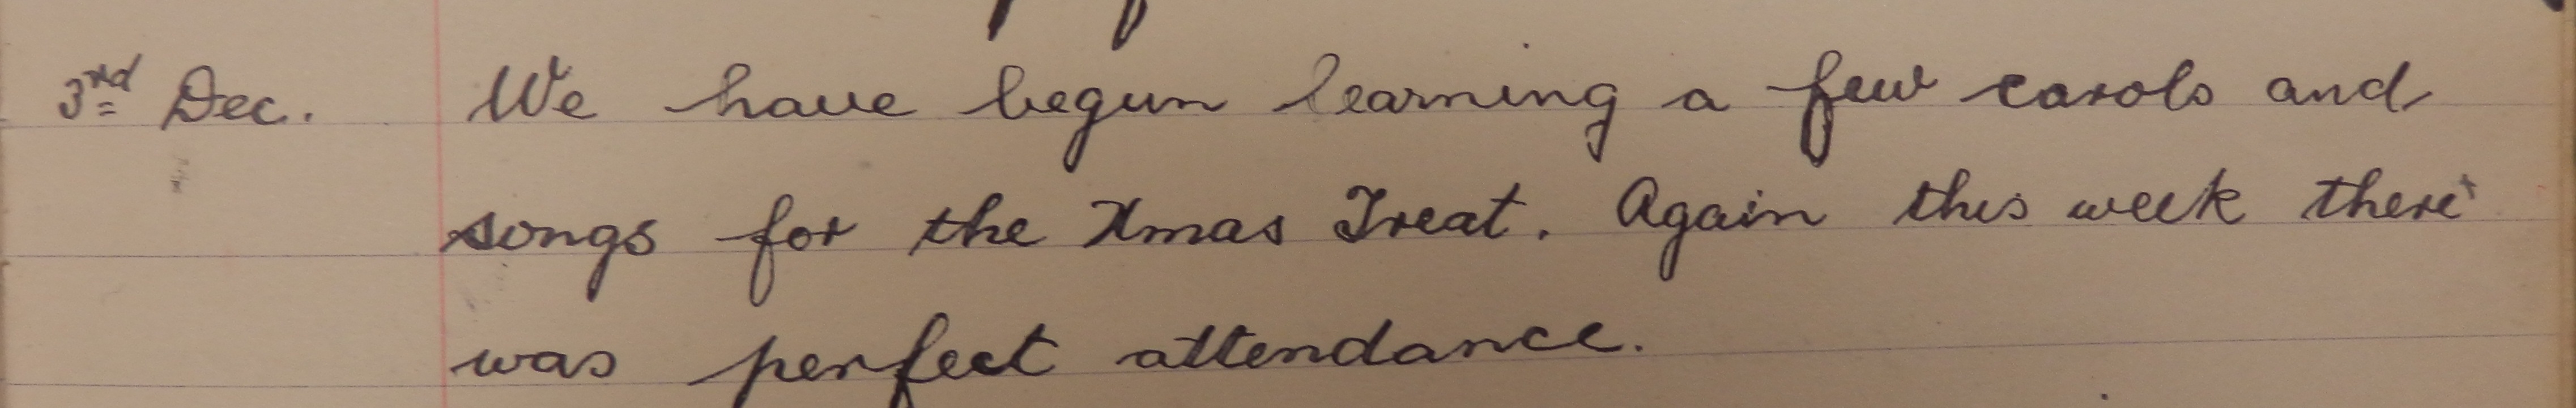 3rd Dec. We have begun learning a few carols and
songs for the Xmas Treat. Again this week there
was perfect attendance.